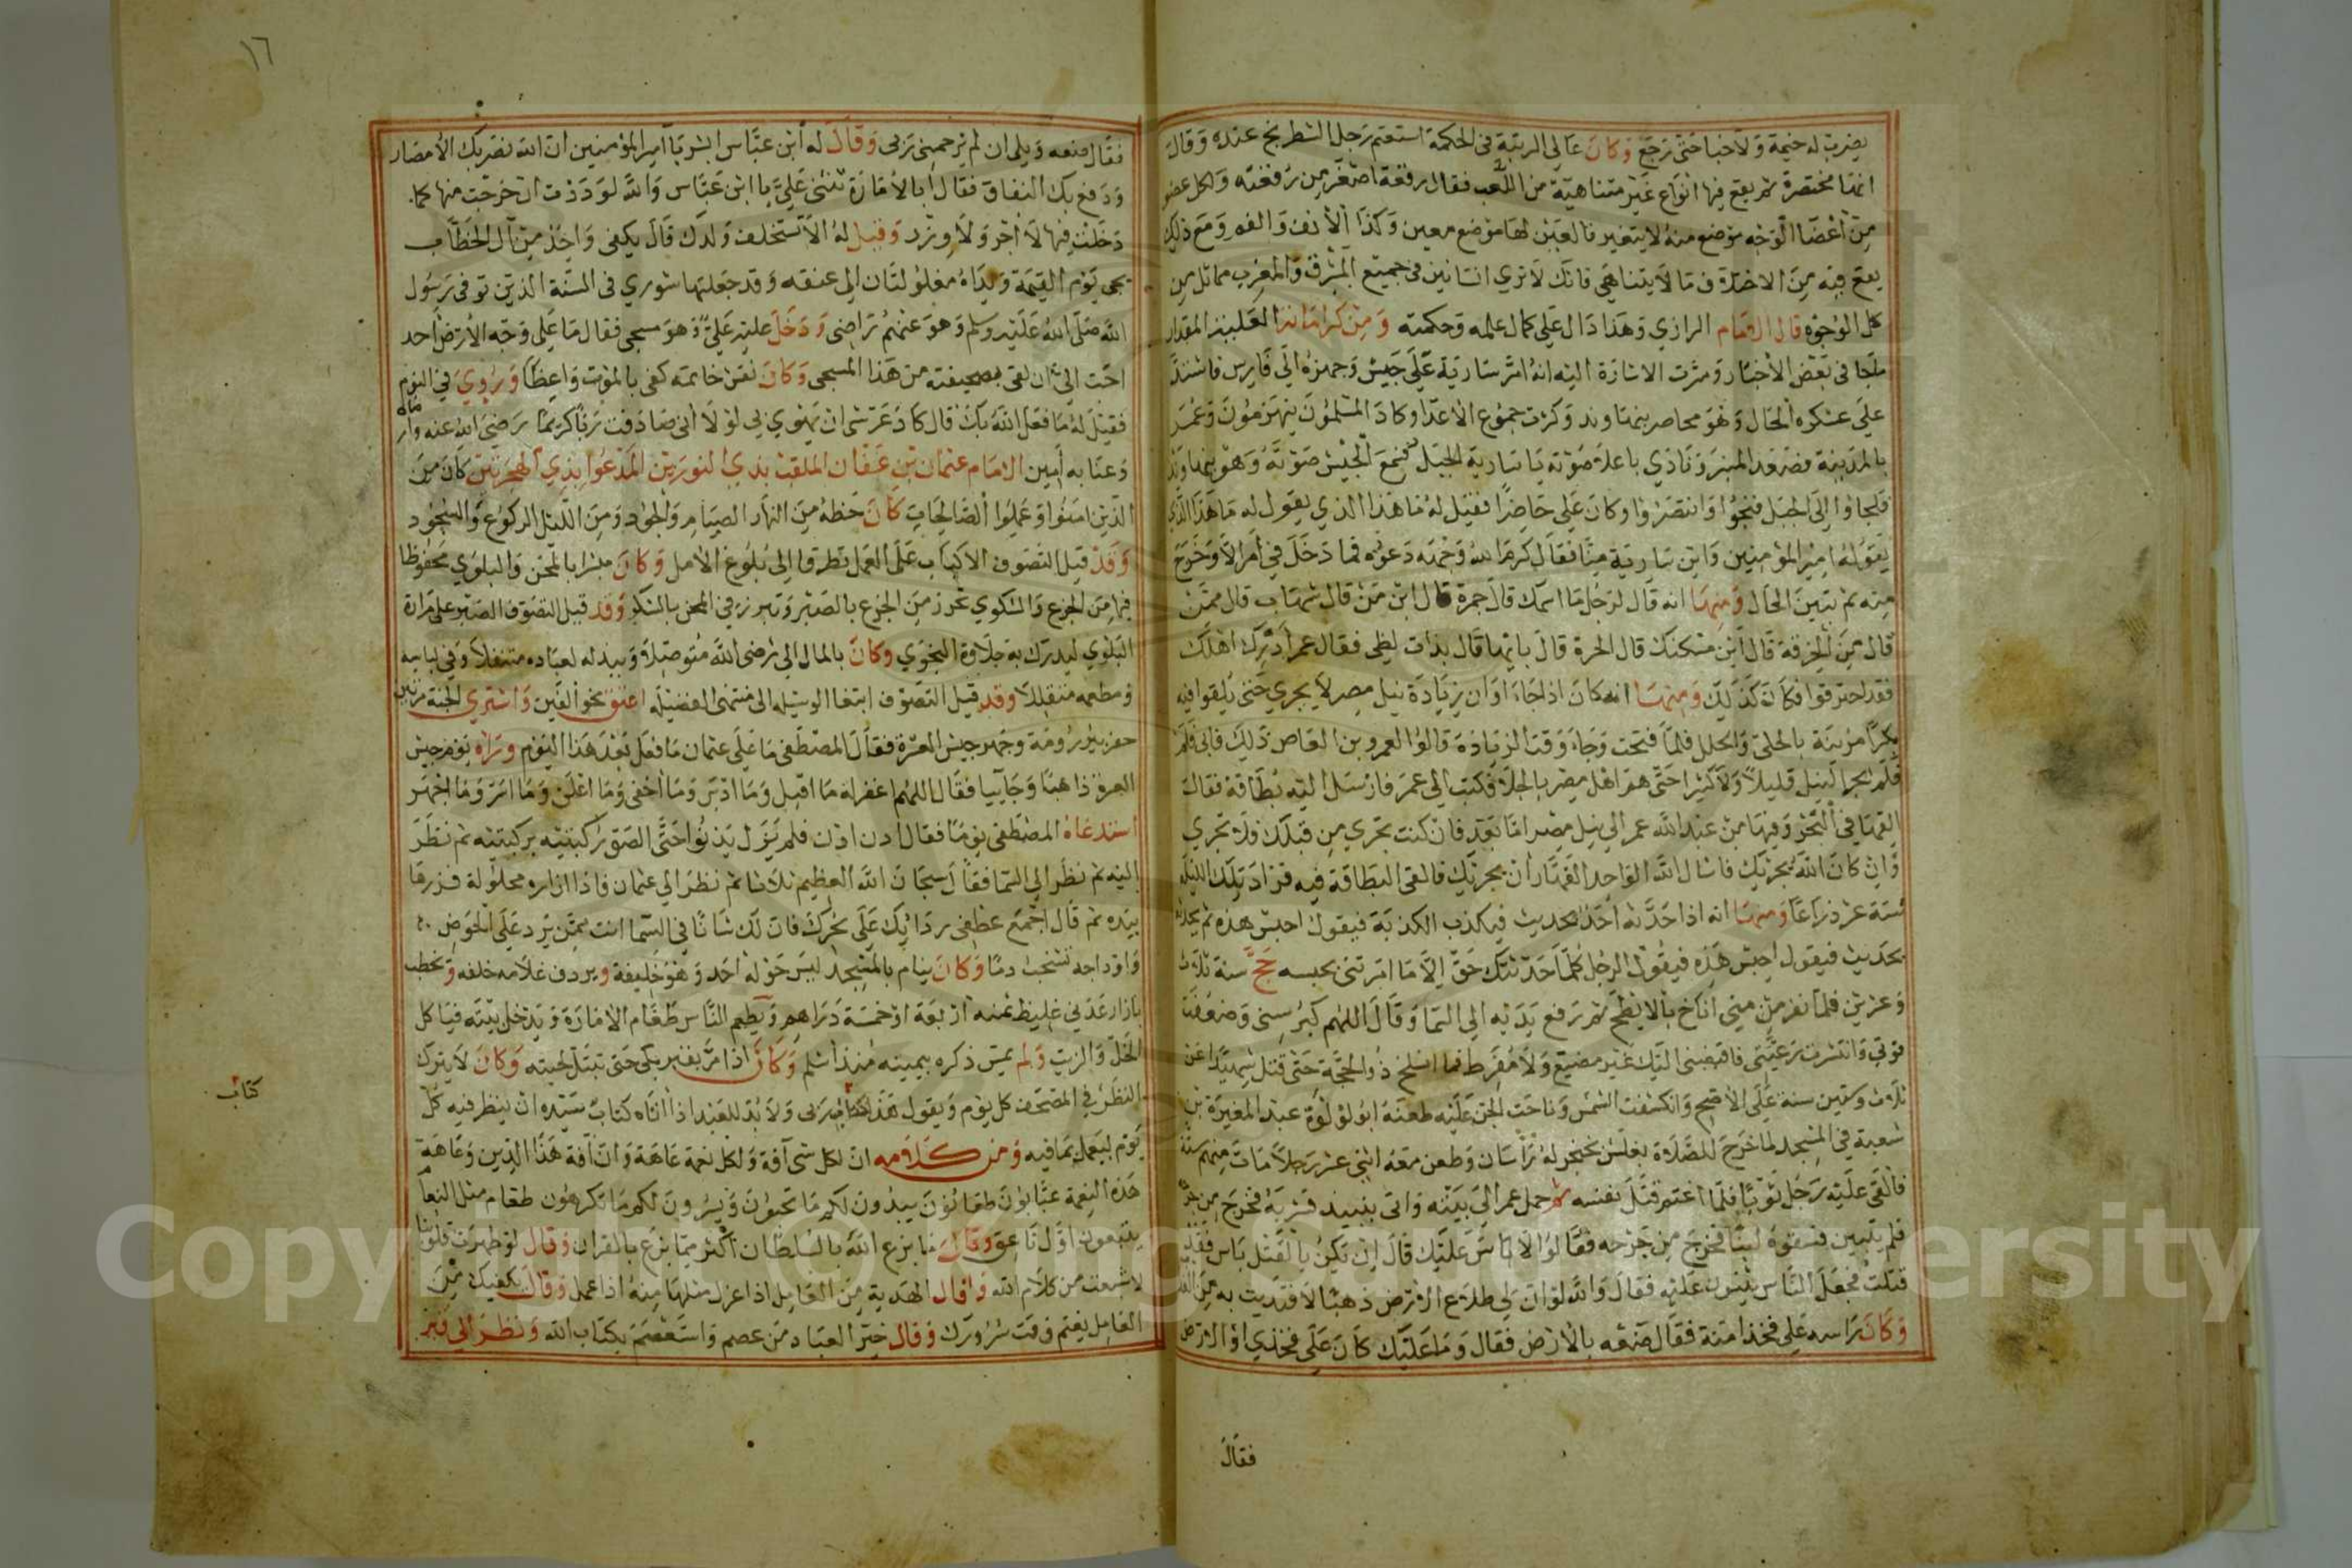 يضرب له خيمة ولا خبا حتى رجع وكان عالي الرتبة في الحكمة استعتم رجل الشطرنج عنده وقال
انها مختصرة ثم يقع فيها انواع غير متناهية من اللعب فقال رقعة اصغر من رقعته ولكل عضو
من أعضا الوجه موضع منه لا يتغير فالعين لها موضع معين وكذا الأنف والفم ومع ذلك
يقع فيه من الاختلاف ما لا يتناهي فانك لا تري انسانين في جميع المشرق والمغرب مماثل من
كل الوجوه قال الامام الرازي وهذا دال على كمال علمه وحكمته ومن كراماته العليبة المقدار
ملجا في بعض الأخبار ومرت الاشارة اليه انه امر سارية على جيش وجهزه الي فارس فاشتد
على عسكره الحال وهو محاصر بنهاوند وكثرت جموع الاعدا وكاد المسلمون ينهزمون وعمر
بالمدينة فصعد المنبر ونادي باعلا صوته يا سارية الجبل فسمع الجيش صوته وهو بنهاوند
فلجاوا إلى الجبل فنجوا وانتصروا وكان علي حاضرا فقيل له ما هذا الذي يقول له ما هذا الذي
يقوله امير المؤمنين واين سارية منا فقال كرم الله وجهه دعوه فما دخل في أمر الا وخرج
منه ثم تبين الحال ومنها انه قال لرجل ما اسمك قال جمرة قال ابن من قال شهاب قال ممن
قال من الحرقة قال أين مسكنك قال الحرة قال بايها قال بذات لظي فقال عمر أدرك اهلك
فقد احترقوا فكان كذلك ومنها انه كان اذا جاء اوان زيادة نيل مصر لا يجري حتى يلقوا فيه
بكرا مزينة بالحلي والحلل فلما فتحت وجاء وقت الزيادة قالوا لعمرو بن العاص ذلك فابي فلم
فلم يجر النيل قليلا ولا كثيرا حتى هم اهل مصر بالجلا فكتب الي عمر فارسل اليه بطاقة فقال
القها في البحر وفيها من عبد الله عمر الي نيل مصر اما بعد فان كنت تجري من قبلك فلا تجري
وان كان الله يجريك فاسال الله الواحد القهار ان يجريك فالقي البطاقة فيه فزاد تلك الليلة
ستة عشر ذراعا ومنها انه اذا حدثه أحد بحديث فيكذب الكذبة فيقول احبس هذه ثم يحدثه
بحديث فيقول احبس هذه فيقول الرجل كلما حدثتك حق إلا ما امرتني بحبسه حج سنة ثلاث
وعشرين فلما نفر من مني اناخ بالابطح ثم رفع يديه الي السما وقال اللهم كبر سني وضعفت
قوتي وانتشرت رعيتي فاقبضني اليك غير مضيع ولا مفرط فما انسلخ ذو الحجة حتى قتل شهيدا عن
ثلاث وستين سنة على الأصح وانكسفت الشمس وناحت الجن عليه طعنه ابو لؤلؤة عبد المغيرة بن
شعبة في المسجد لما خرج للصلاة بغلس بخنجر له رأسان وطعن معه اثني عشر رجلا مات منهم ستة
فالقى عليه رجل ثوبا فلما اغتم قتل نفسه ثم حمل عمر الي بيته واتى بنبيذ فشربه فخرج من جرحه
فلم يتبين فسقوه لبنا فخرج من جرحه فقالوا لا باس عليك قال ان يكن بالقتل باس فقد
قتلت فجعل الناس يثنون عليه فقال والله لو ان لي طلاع الارض ذهبا لافتديت به من الله
وكان راسه على فخذ ابنه فقال ضعه بالارض فقال وما عليك كان على فخذي او الارض
فقال
١٦
فقال ضعه ويلي ان لم يرحمني ربي وقال له أبن عباس ابشر يا أمير المؤمنين ان الله نصر بك الأمصار
ودفع بك النفاق فقال أبالأمارة تثني علي يا ابن عباس والله لوددت ان خرجت منها كما
دخلت فيها لا أجر ولا وزر وقيل له ألا تستخلف ولدك قال يكفي واحد من آل الخطاب
يجي يوم القيمة ويداه مغلولتان الى عنقه وقد جعلتها شوري في الستة الذين توفي رسول
الله صلى الله عليه وسلم وهو عنهم راضي ودخل عليه علي وهو مسجى فقال ما على وجه الأرض احد
احب إلي ان لقى بصحيفته من هذا المسجى وكان نقش خاتمه كفى بالموت واعظا وروي في النوم
فقيل له ما فعل الله بك قال كاد عرشي ان يهوي بي لولا أني صادفت ربا كريما رضي الله عنه وارضاه
وعنا به أمين الامام عثمان بن عفان الملقب بذي النورين المدعوا بذي الهجرتين كان من
الذين امنوا وعملوا الصالحات كان حظه من النهار الصيام والجود ومن الليل الركوع والسجود
وقد قيل التصوف الاكباب على العمل تطرقا إلى بلوغ الأمل وكان مبشرا بالمحن والبلوي محفوظا
فيها من الجزع والشكوي تحرز من الجزع بالصبر وتبرز في المحن بالشكر وقد قيل التصوف الصبر على مرارة
البلوي ليدرك به حلاوة النجوي وكان بالمال الى رضى الله متوصلا وببدله لعباده متنفلا وفي لباسه
ومطعمه متقللا وقد قيل التصوف ابتغا الوسيله الى منتهى الفضيله اعتق نحو الفين واشتري الجنة مرتين
حفر بير رومة وجهز جيش العسرة فقال المصطفى ما على عثمان ما فعل بعد هذا اليوم وراه يوم جيش
العسرة ذاهبا وجاييا فقال اللهم اغفر له ما اقبل وما ادبر وما أخفى وما اعلن وما اسر وما اجهر
استدعاه المصطفى يوما فقال أدن ادن فلم يزل يدنوا حتى الصق ركبتيه بركبتيه ثم نظر
إليه ثم نظر الي السما فقال سبحان الله العظيم ثلاثا ثم نظر الي عثمان فاذا ازاره محلولة فزرها
بيده ثم قال اجمع عطفى ردائك على نحرك فان لك شانا في السما انت ممن يرد على الحوض
واوداجه تشخب دما وكان ينام بالمسجد ليس حوله احد وهو خليفة ويردف غلامه خلفه ويخطب
بازار عدني غليظ ثمنه اربعة او خمسة دراهم ويطعم الناس طعام الامارة ويدخل بيته فياكل
الخل والزيت ولم يمس ذكره بيمينه منذ أسلم وكان اذا مر بقبر بكى حتى تبتل لحيته وكان لا يترك
النظر في المصحف كل يوم ويقول هذا كتاب ربى ولا بد للعبد اذا أتاه كتاب سيده ان ينظر فيه كل
يوم ليعمل بما فيه ومن كلامه ان لكل شي آفة ولكل نعمة عاهة وان آفة هذا الدين وعاهة
هذه النعمة عيابون طعانون يبدون لكم ما تحبون ويسرون لكم ما تكرهون طغام مثل النعام
يتبعون اول ناعق وقال ما يزع الله بالسلطان أكثر مما يزع بالقران وقال لو طهرت قلوبنا
لا شبعت من كلام الله وقال الهدية من العامل اذا عزل مثلها منه اذا عمل وقال يكفيك من
العامل يغتم وقت سرورك وقال خير العباد من عصم واستعصم بكتاب الله ونظر الى قبر
كتاب
Copyright © King Saud University